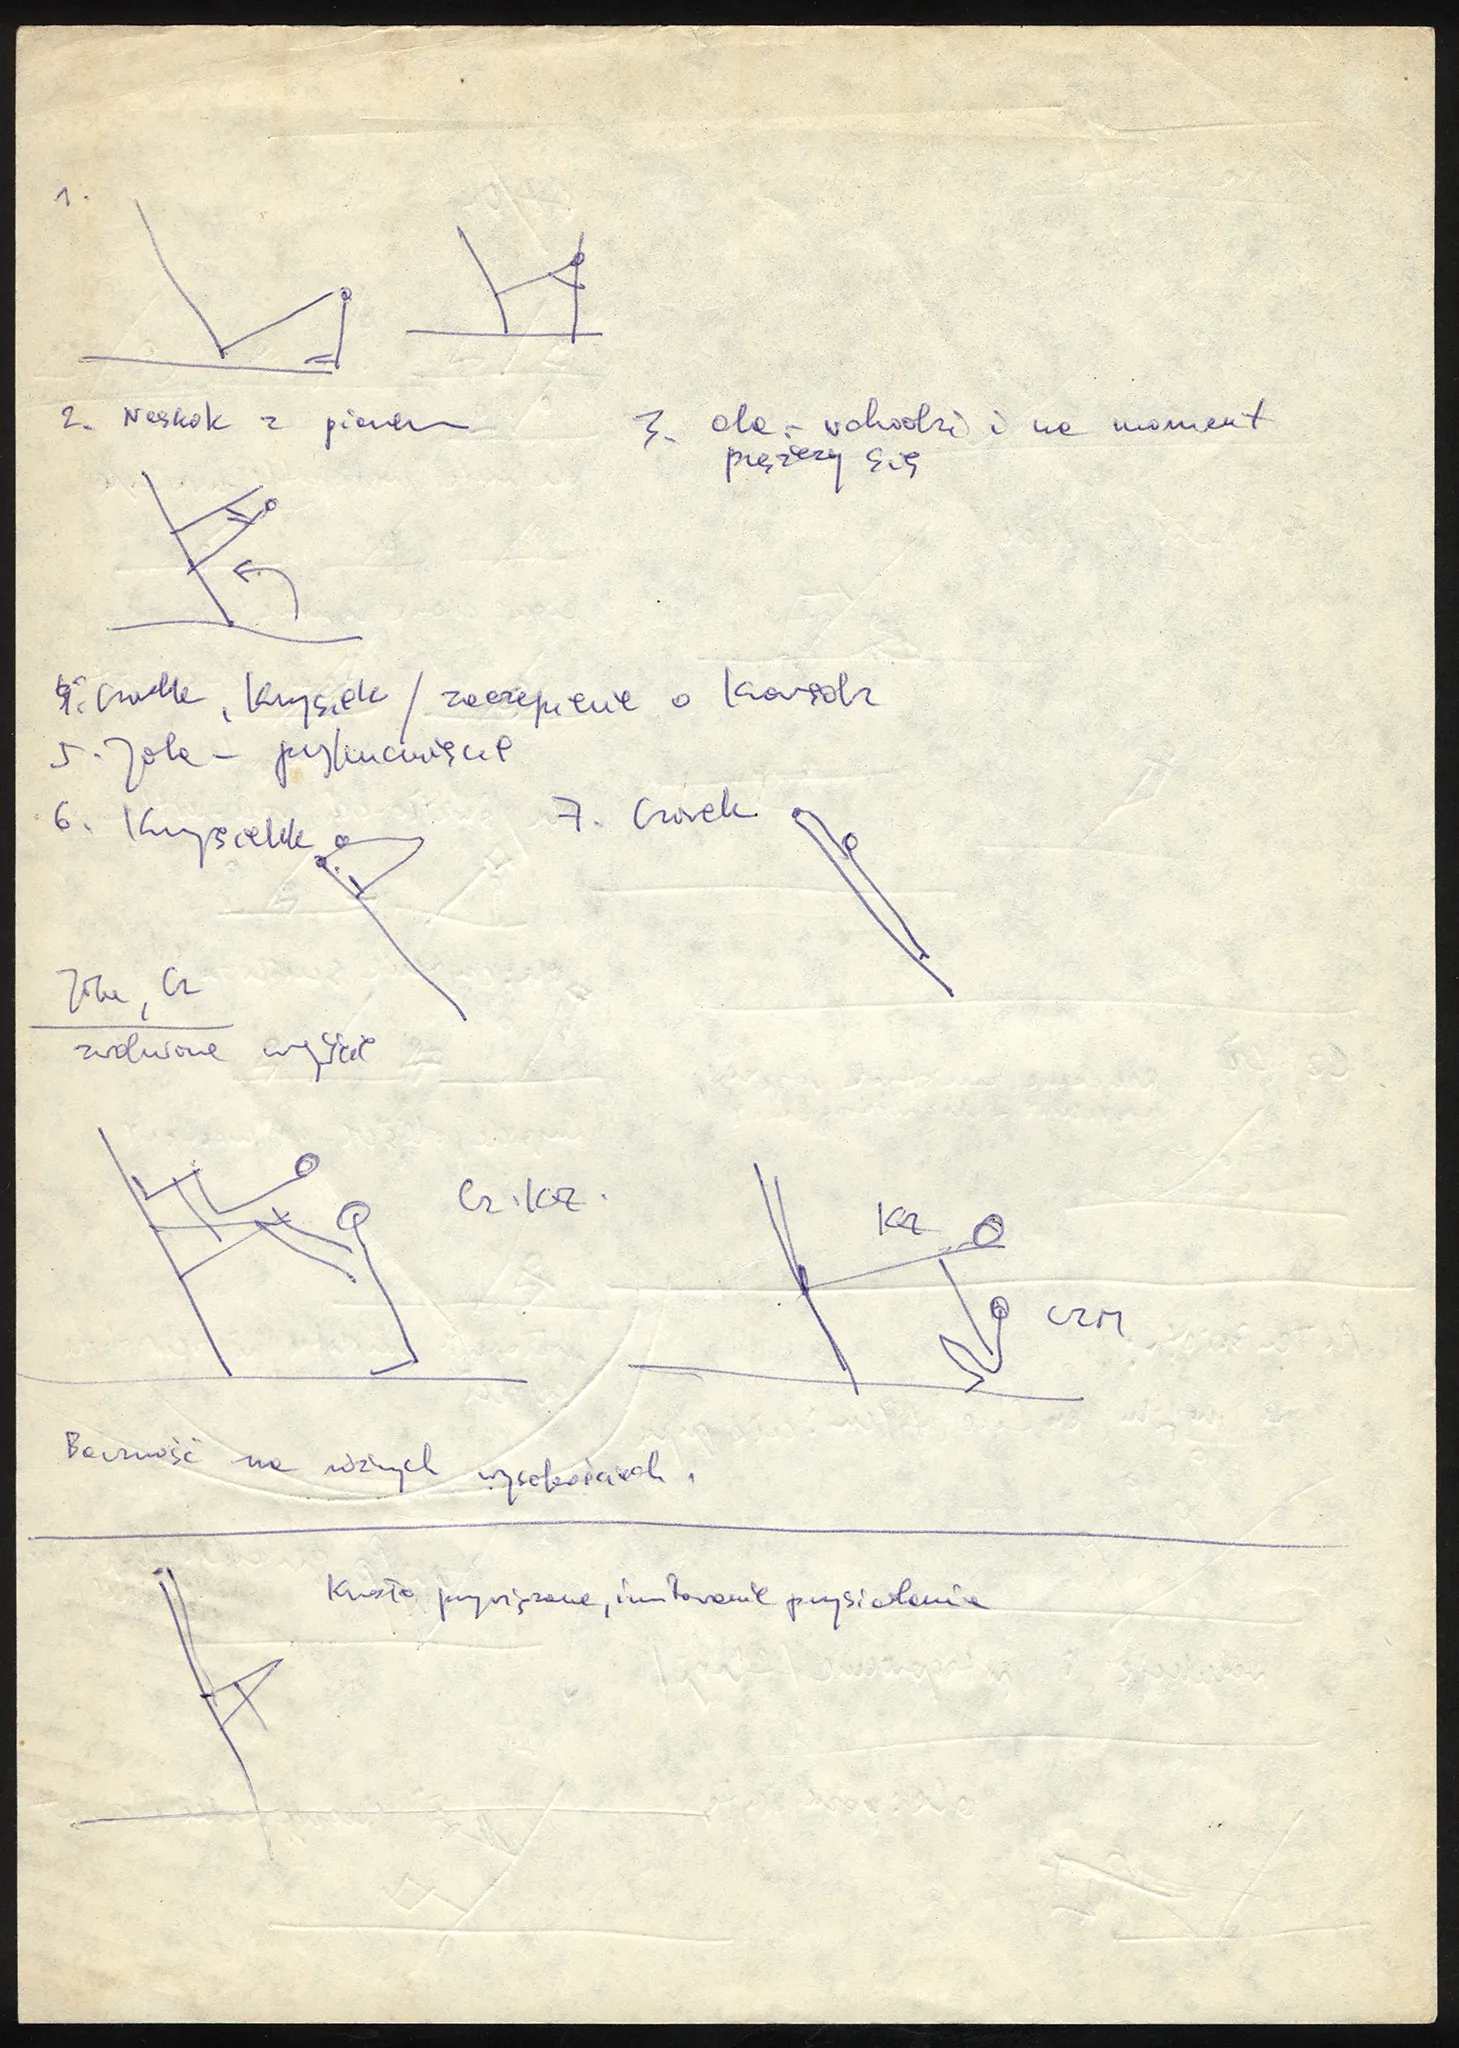 1.
2. Naskok z pionem
3. Ola - wchodzi i na moment
pręży się
4. Czarek, Krysiek / zaczepienie o krawędź
5. Jola - przykucnięcie
6. Krysiek
7. Czarek
Jola, Cz
zwolnione wyjście
Cz. Krz.
Krz
CZM
Baczność na różnych wysokościach.
Krzesło przywiązane, imitowanie przysiadania